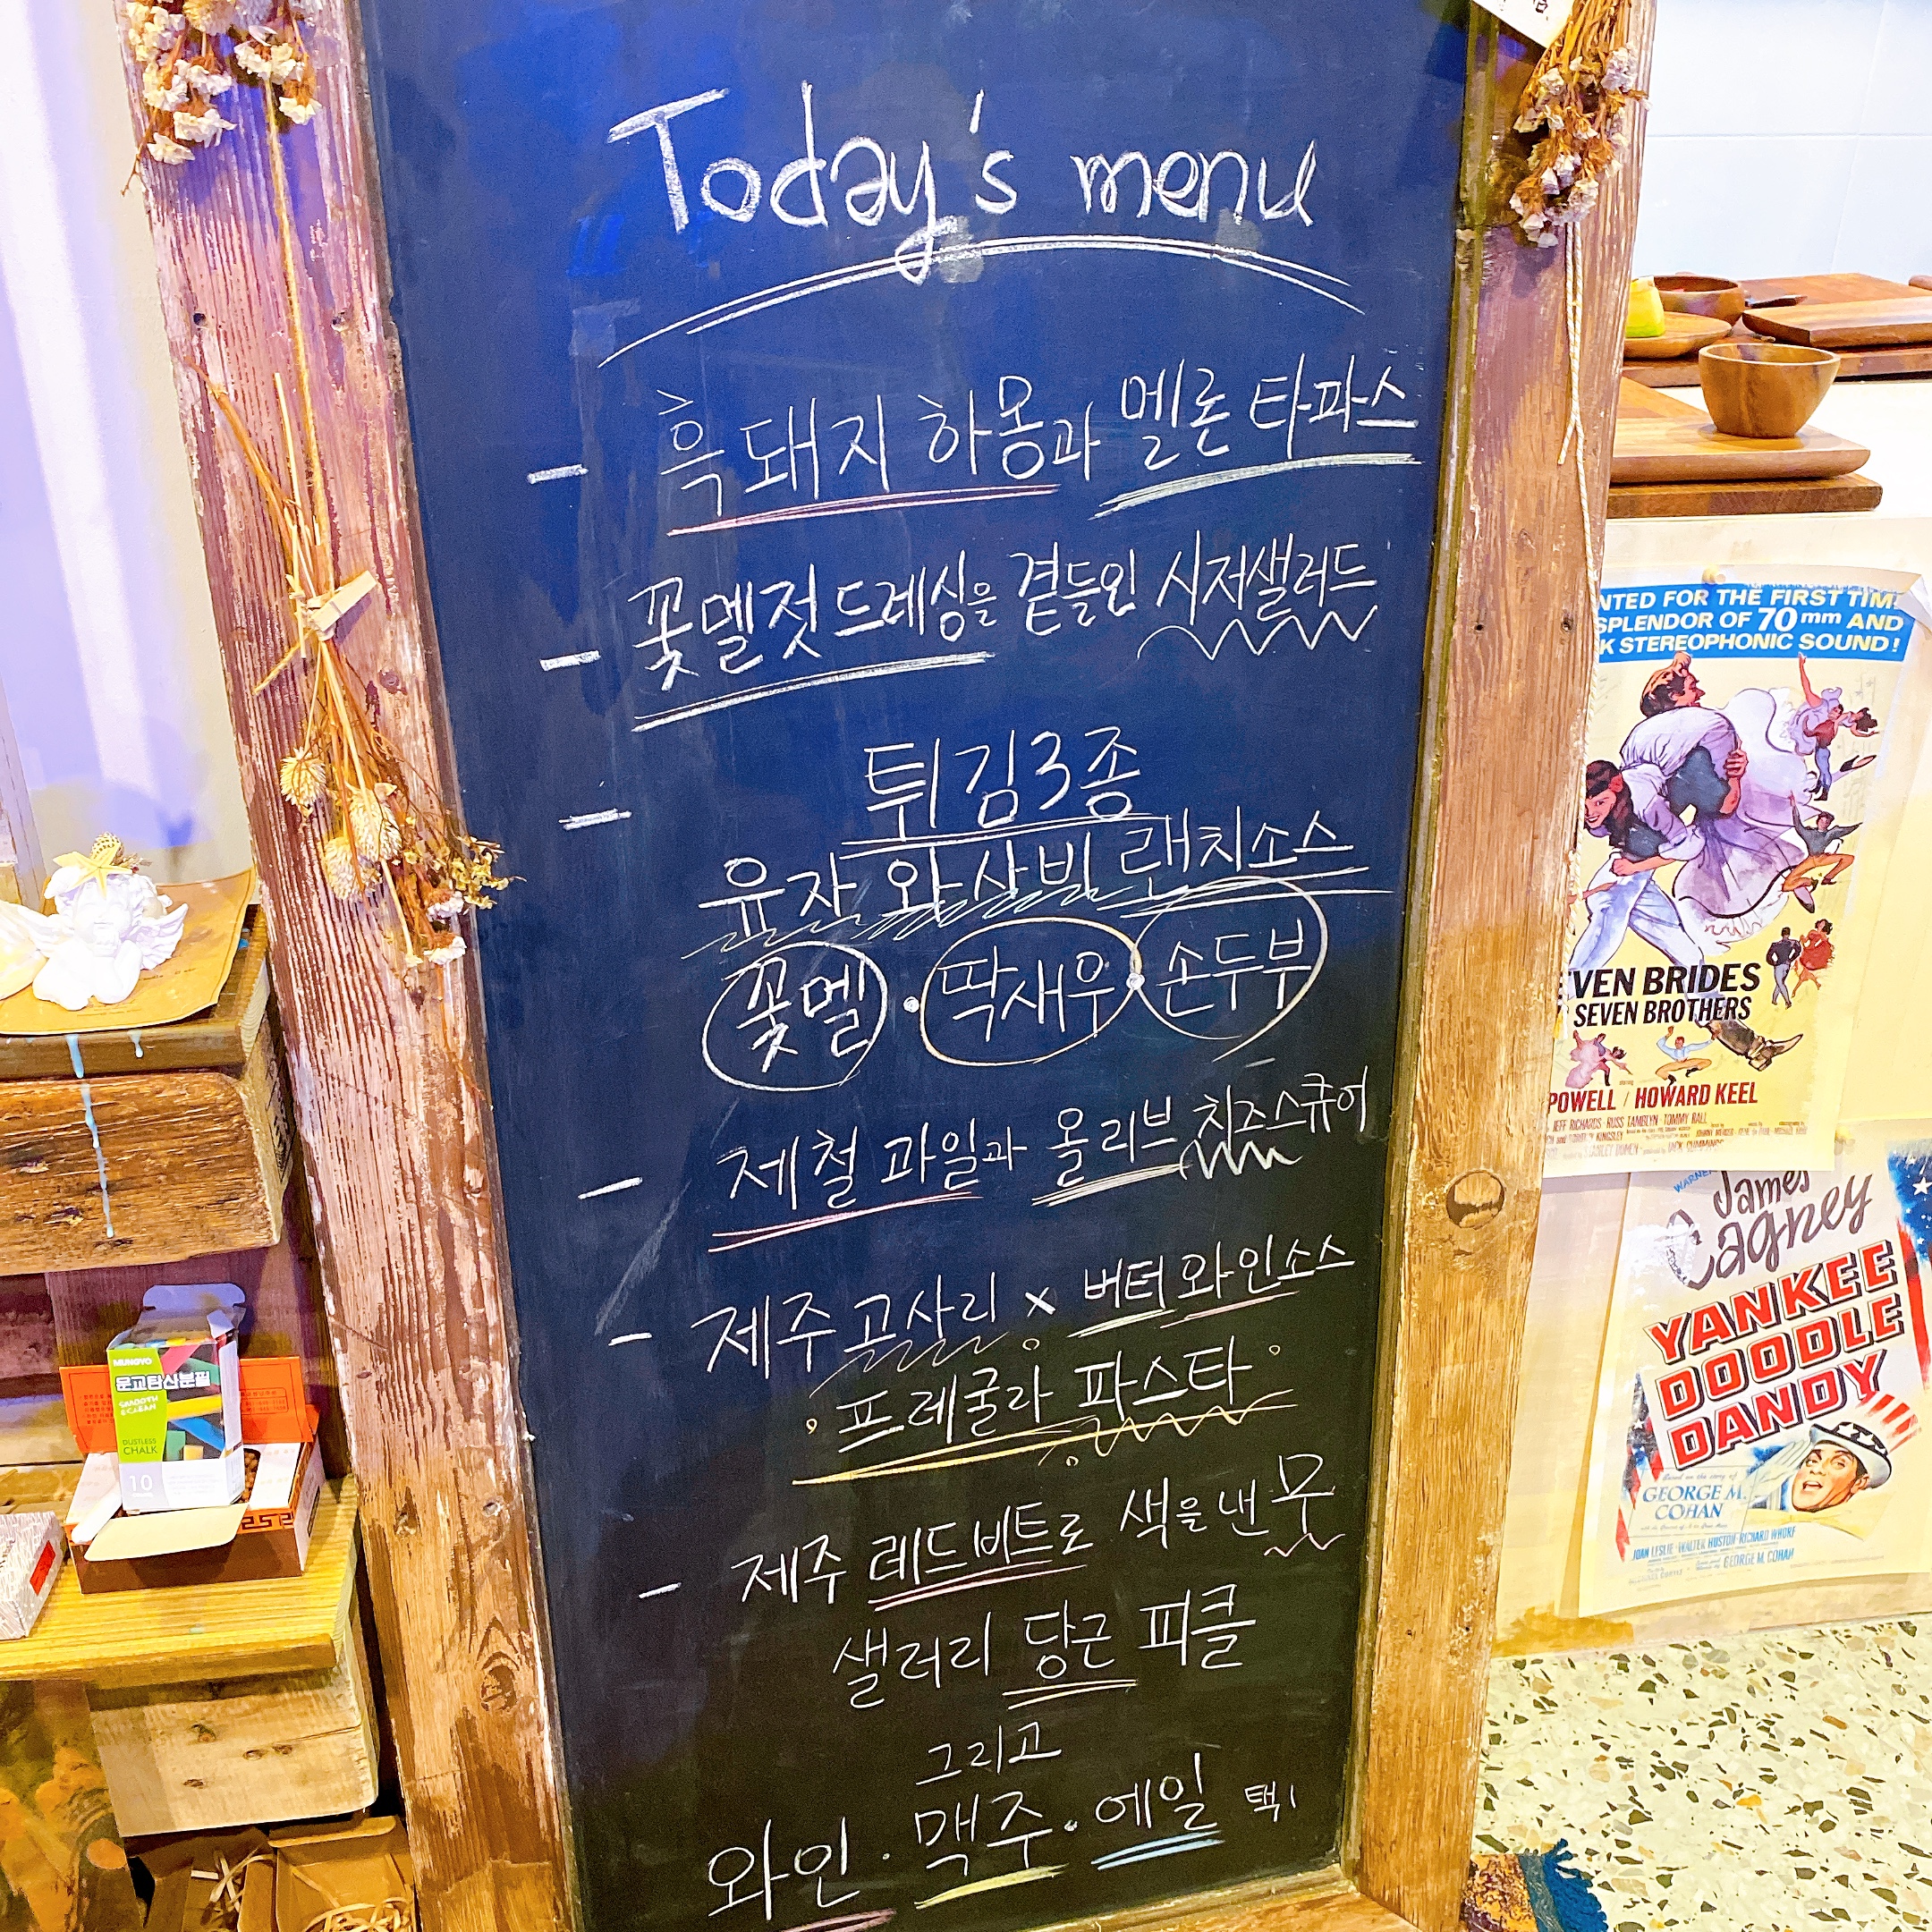 Today's menu
- 흑돼지 하몽과 멜론 타파스
- 꽃멜젓 드레싱을 곁들인 시저샐러드
- 튀김3종
유자 와사비 랜치소스
꽃멜 · 딱새우 · 손두부
- 제철 과일과 올리브 치즈스큐어
- 제주 고사리 x 버터 와인소스
프레굴라 파스타
- 제주 레드비트로 색을 낸 무
샐러리 당근 피클
그리고
와인 · 맥주 · 에일 택1
NTED FOR THE FIRST TIM
SPLENDOR OF 70 mm AND
K STEREOPHONIC SOUND!
VEN BRIDES
SEVEN BROTHERS
POWELL / HOWARD KEEL
JEFF RICHARDS RUSS TAMBLYN TOMMY RALL
James
Cagney
YANKEE
DOODLE
DANDY
Based on the story of
GEORGE M.
COHAN
JOAN LESLIE WALTER HUSTON RICHARD WHORF
GEORGE M. COHAN
MUNGYO
문교탄산분필
SMOOTH
& CLEAN
DUSTLESS
CHALK
10